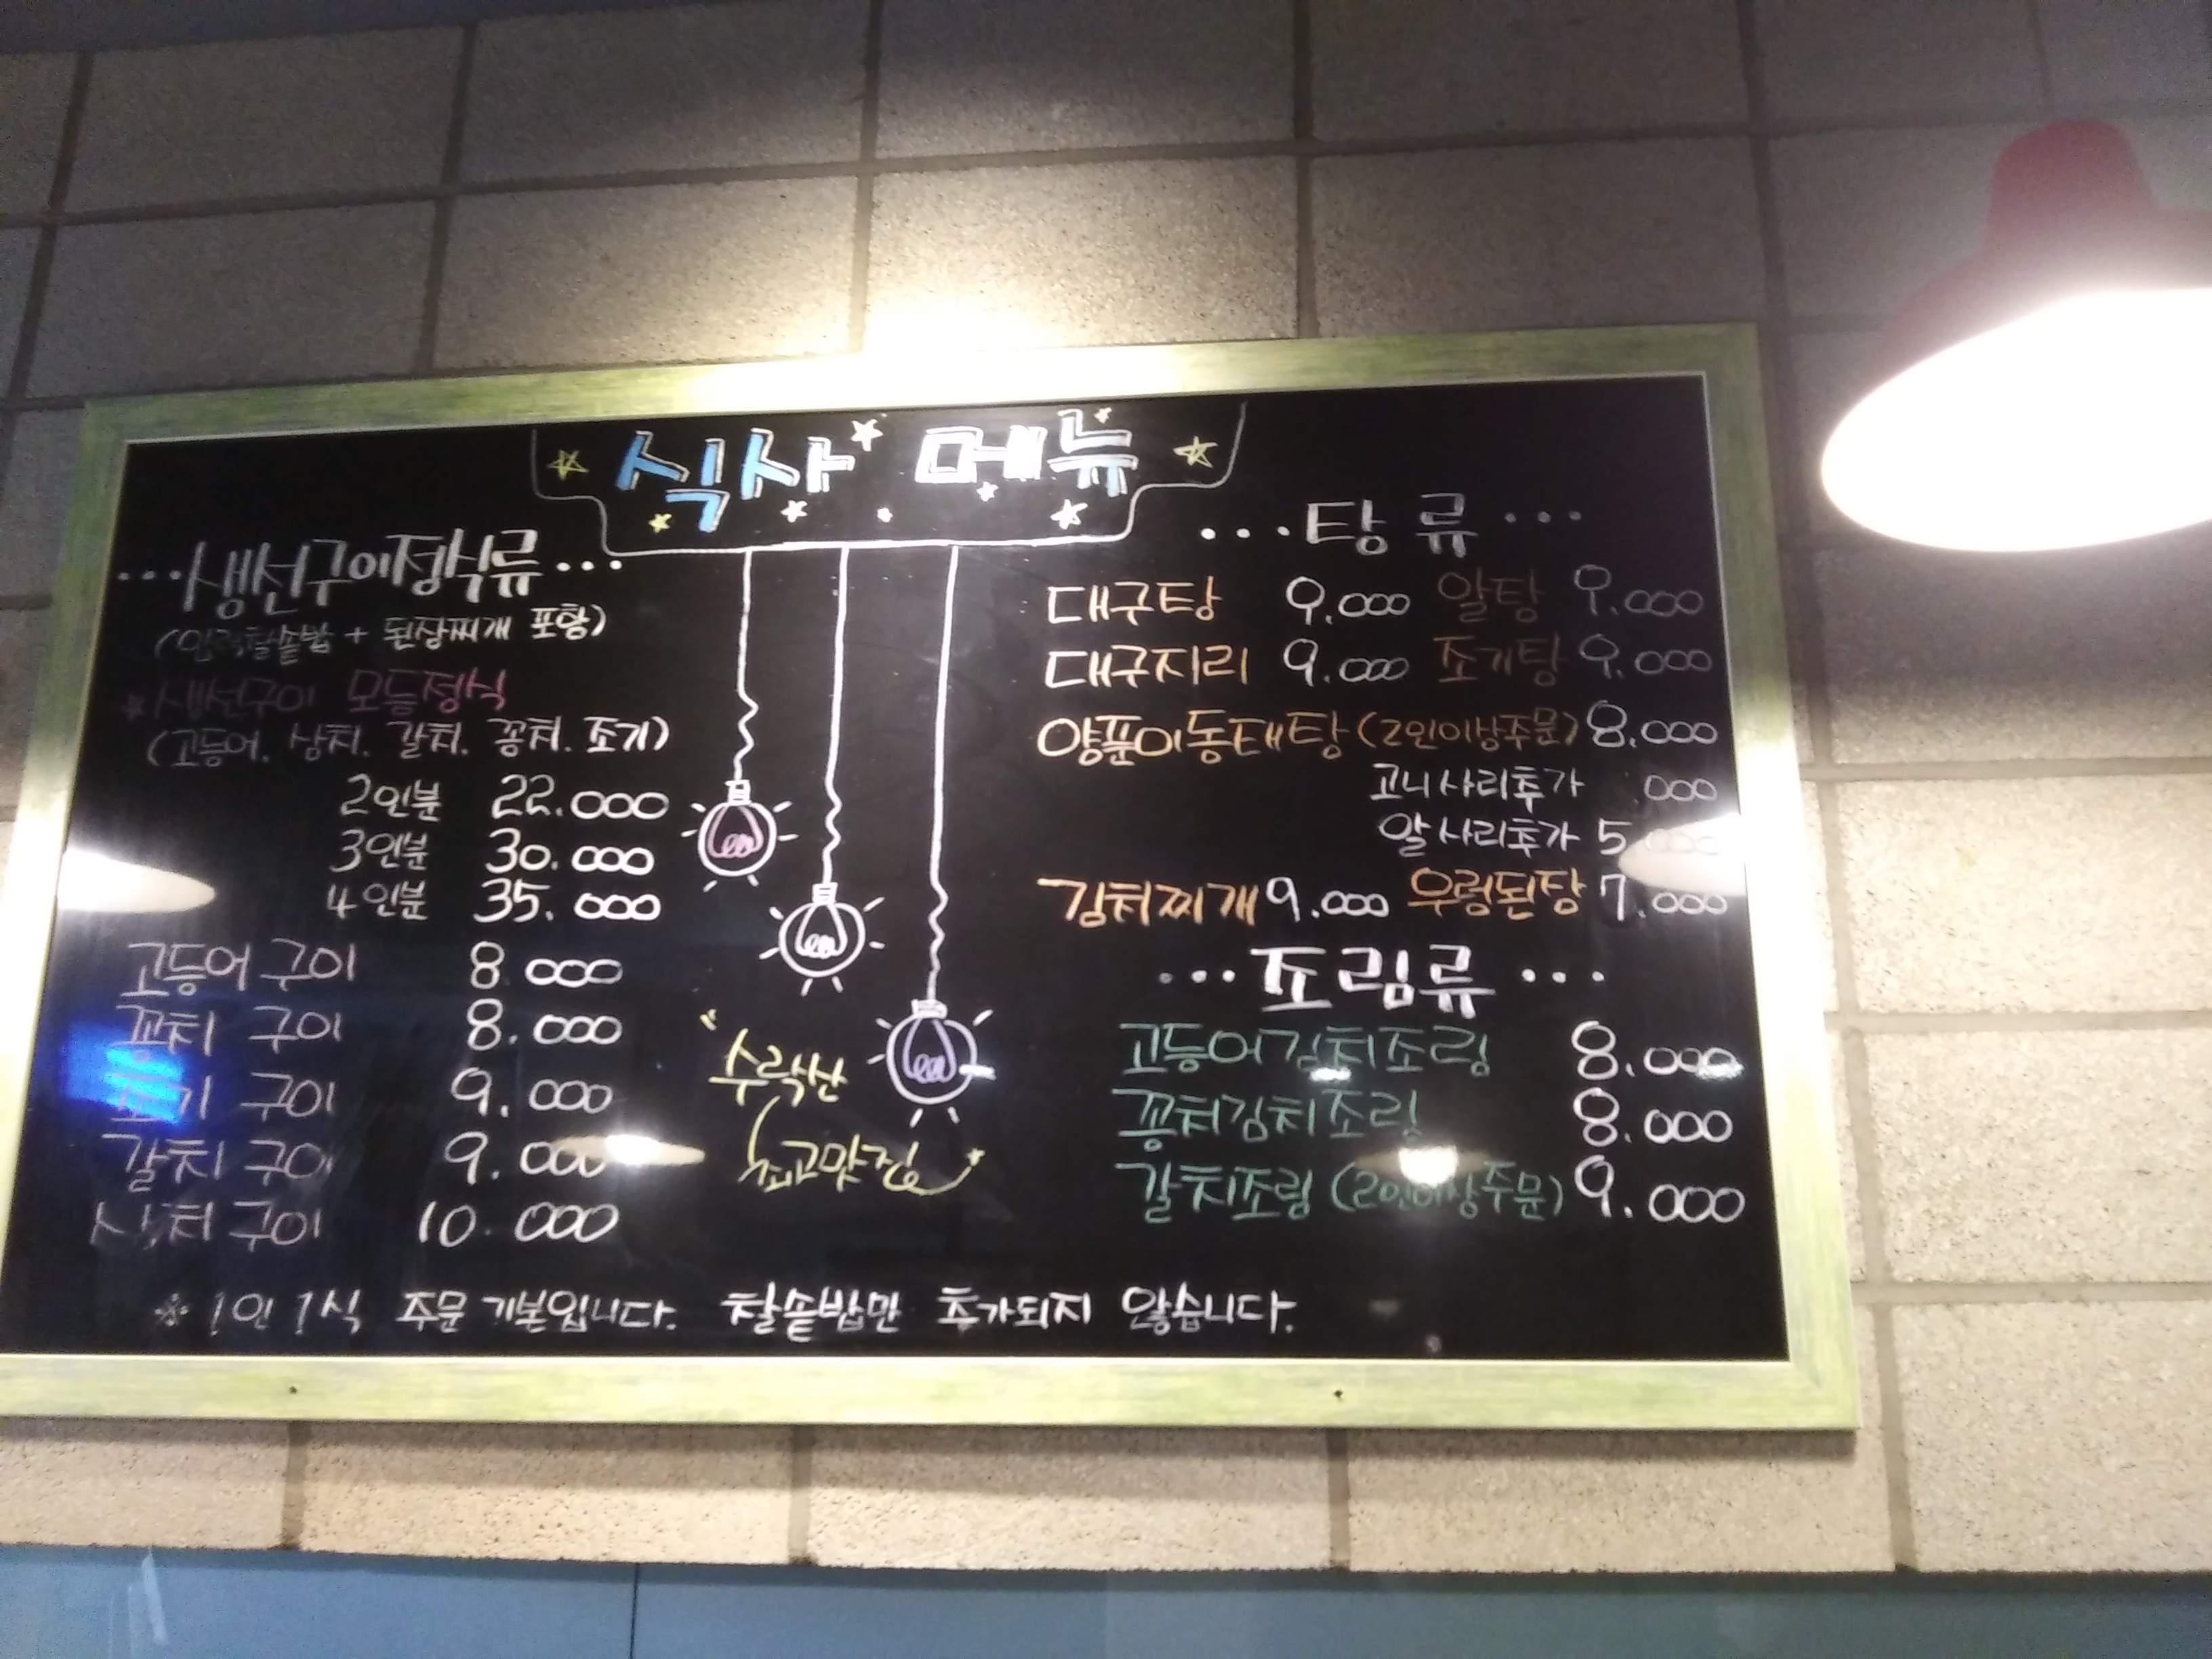 식사 메뉴
...생선구이정식류...
(영양찰솥밥 + 된장찌개 포함)
* 생선구이 모듬정식
(고등어. 삼치. 갈치. 꽁치. 조기)
2인분 22.000
3인분 30.000
4인분 35.000
고등어 구이 8.000
꽁치 구이 8.000
조기 구이 9.000
갈치 구이 9.000
삼치 구이 10.000
"수락산
최고맛집
...탕류...
대구탕 9.000 알탕 9.000
대구지리 9.000 조기탕 9.000
양푼이동태탕 (2인이상주문) 8.000
고니사리추가 000
알사리추가 5.000
김치찌개 9.000 우렁된장 7.000
...조림류...
고등어김치조림 8.000
꽁치김치조림 8.000
갈치조림 (2인이상주문) 9.000
* 1인 1식 주문 기본입니다. 찰솥밥만 추가되지 않습니다.